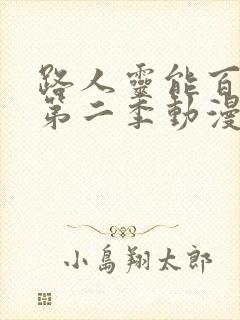 路人靈能百
第二季動漫
小島翔太郎